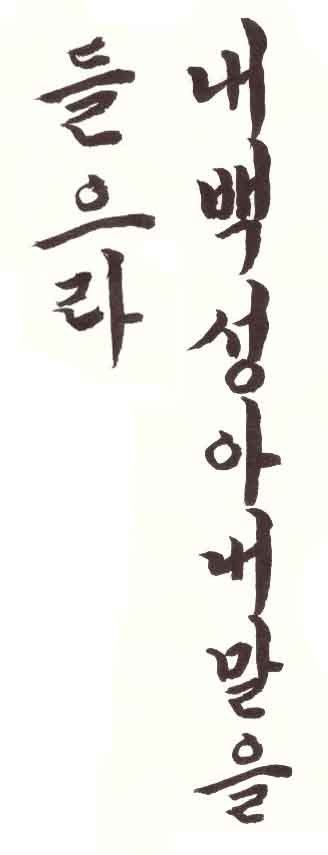 내백성아내말을
들으라